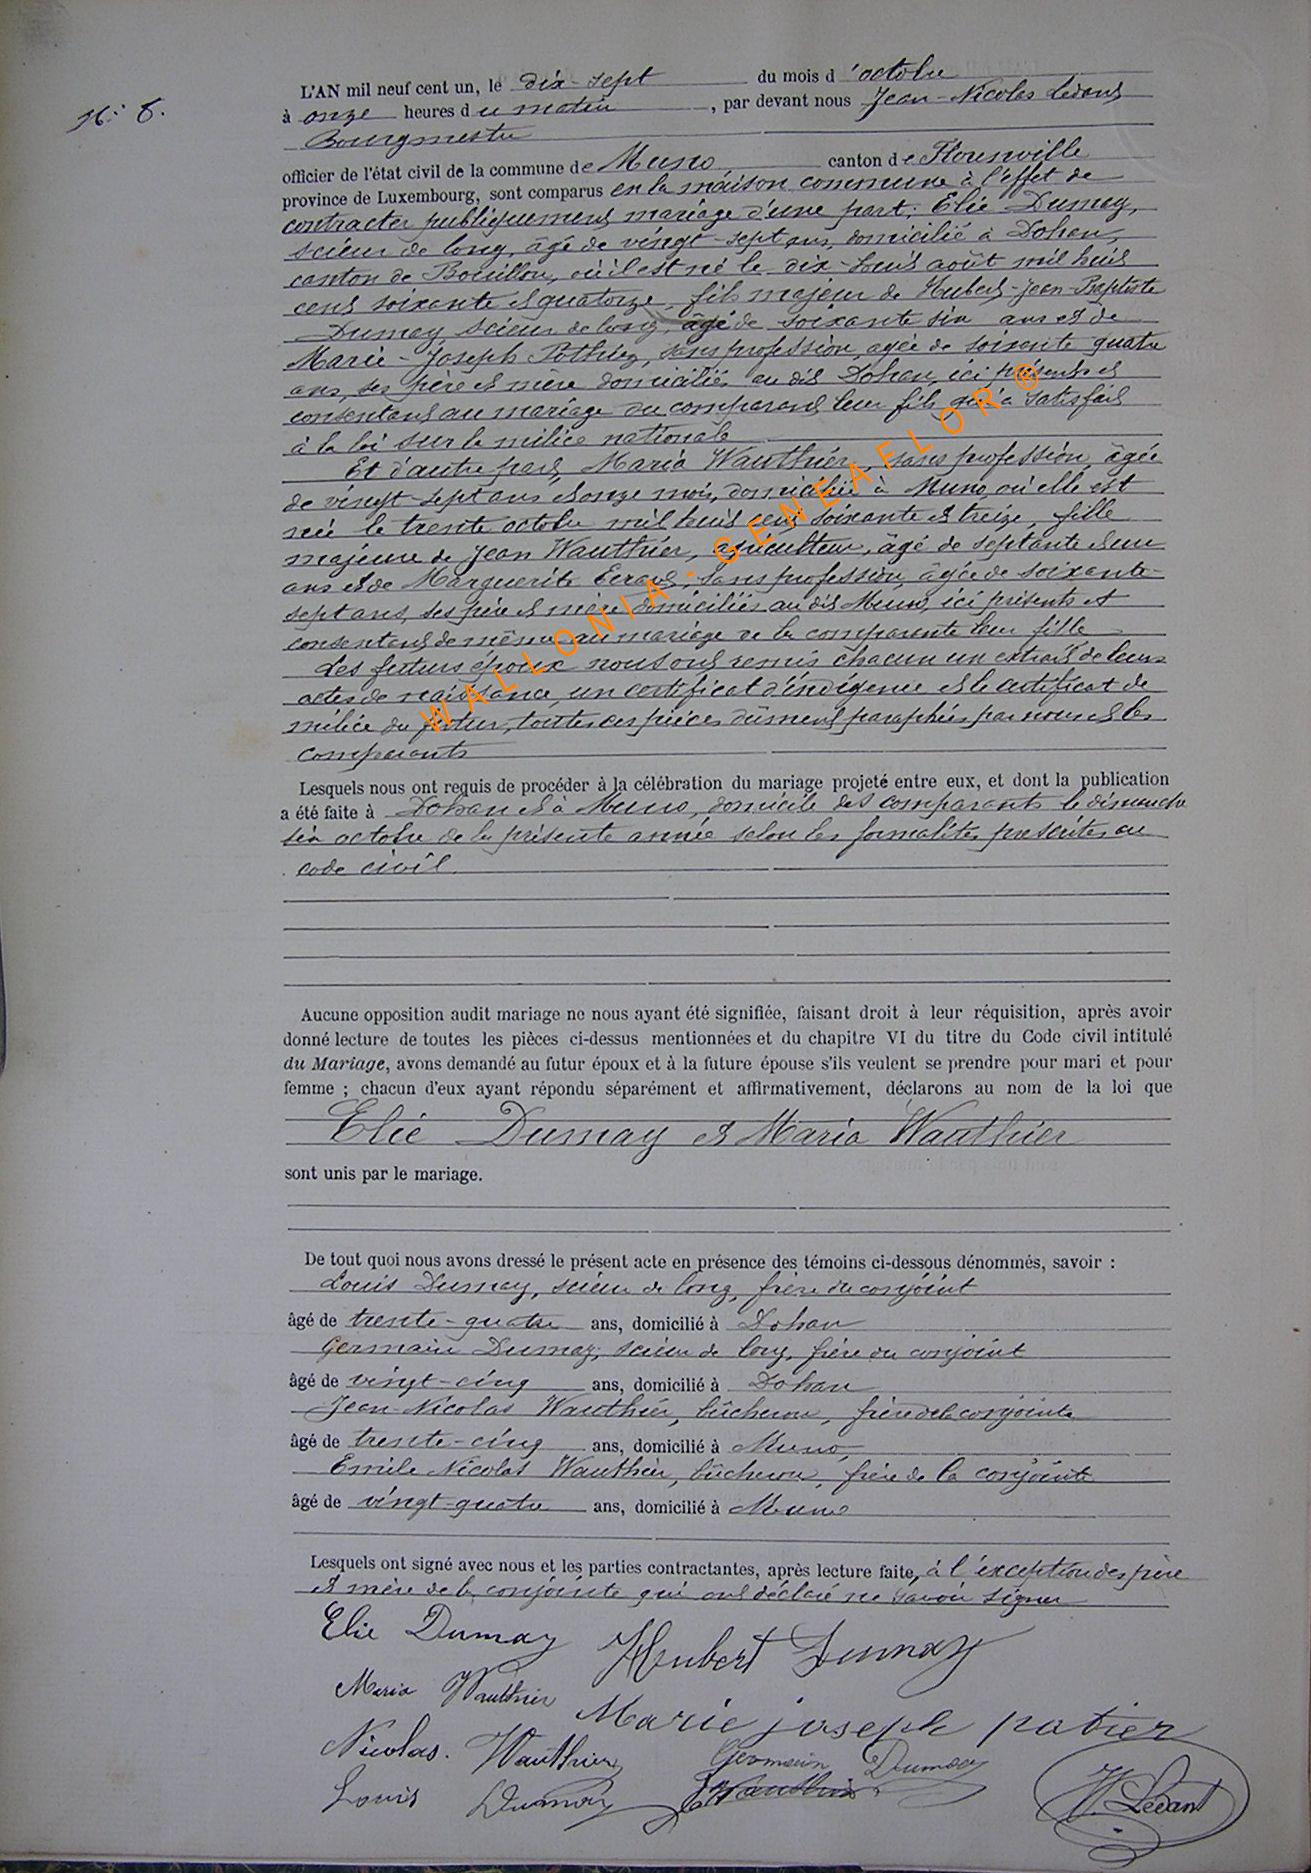 N° 8.
L'AN mil neuf cent un, le dix-sept du mois d'octobre
à onze heures du matin, par devant nous Jean-Nicolas Ledant
Bourgmestre
officier de l'état civil de la commune de Muno, canton de Florenville
province de Luxembourg, sont comparus en la maison commune à l'effet de
contracter publiquement mariage d'une part; Elie Dumay,
scieur de long, âgé de vingt-sept ans, domicilié à Dohan,
canton de Bouillon, où il est né le dix-huit août mil huit
cent soixante et quatorze, fils majeur de Hubert-Jean-Baptiste
Dumay, scieur de long, âgé de soixante six ans et de
Marie-Joseph Pothier, sans profession, agée de soixante quatre
ans, ses père et mère domiciliés au dit Dohan, ici présents et
consentant au mariage du comparant leur fils qui a satisfait
à la loi sur la milice nationale
Et d'autre part, Maria Wauthier, sans profession, âgée
de vingt-sept ans et onze mois, domiciliée à Muno, où elle est
née le trente octobre mil huit cent soixante et treize, fille
majeure de Jean Wauthier, agriculteur, âgé de septante et un
ans et de Marguerite, sans profession, âgée de soixante-
sept ans, ses père et mère domiciliés au dit Muno, ici présents et
consentant de même au mariage de la comparante leur fille
Les futurs époux nous ont remis chacun un extrait de leurs
actes de naissance, un certificat d'indigence et le certificat de
milice du futur, toutes ces pièces dûment paraphées par nous et les
comparants
WALLONIA-GENEAFLOR®
Lesquels nous ont requis de procéder à la célébration du mariage projeté entre eux, et dont la publication
a été faite à Dohan et à Muno, domicile des comparants le dimanche
six octobre de la présente année selon les formalités prescrites au
code civil.
Aucune opposition audit mariage ne nous ayant été signifiée, faisant droit à leur réquisition, après avoir
donné lecture de toutes les pièces ci-dessus mentionnées et du chapitre VI du titre du Code civil intitulé
du Mariage, avons demandé au futur époux et à la future épouse s'ils veulent se prendre pour mari et pour
femme ; chacun d'eux ayant répondu séparément et affirmativement, déclarons au nom de la loi que
Elie Dumay et Maria Wauthier
sont unis par le mariage.
De tout quoi nous avons dressé le présent acte en présence des témoins ci-dessous dénommés, savoir :
Louis Dumay, scieur de long, frère du conjoint
âgé de trente-quatre ans, domicilié à Dohan
Germain Dumay, scieur de long, frère du conjoint
âgé de vingt-cinq ans, domicilié à Dohan
Jean-Nicolas Wauthier, bûcheron, frère de la conjointe
âgé de trente-cinq ans, domicilié à Muno,
Emile Nicolas Wauthier, bûcheron, frère de la conjointe
âgé de vingt-quatre ans, domicilié à Muno
Lesquels ont signé avec nous et les parties contractantes, après lecture faite, à l'exception des père
et mère de la conjointe qui ont déclaré ne savoir signer
Elie Dumay Hubert Dumay
Maria Wauthier
Marie joseph potier
Nicolas Wauthier Germain Dumay
Louis Dumay E Wauthier N. Ledant